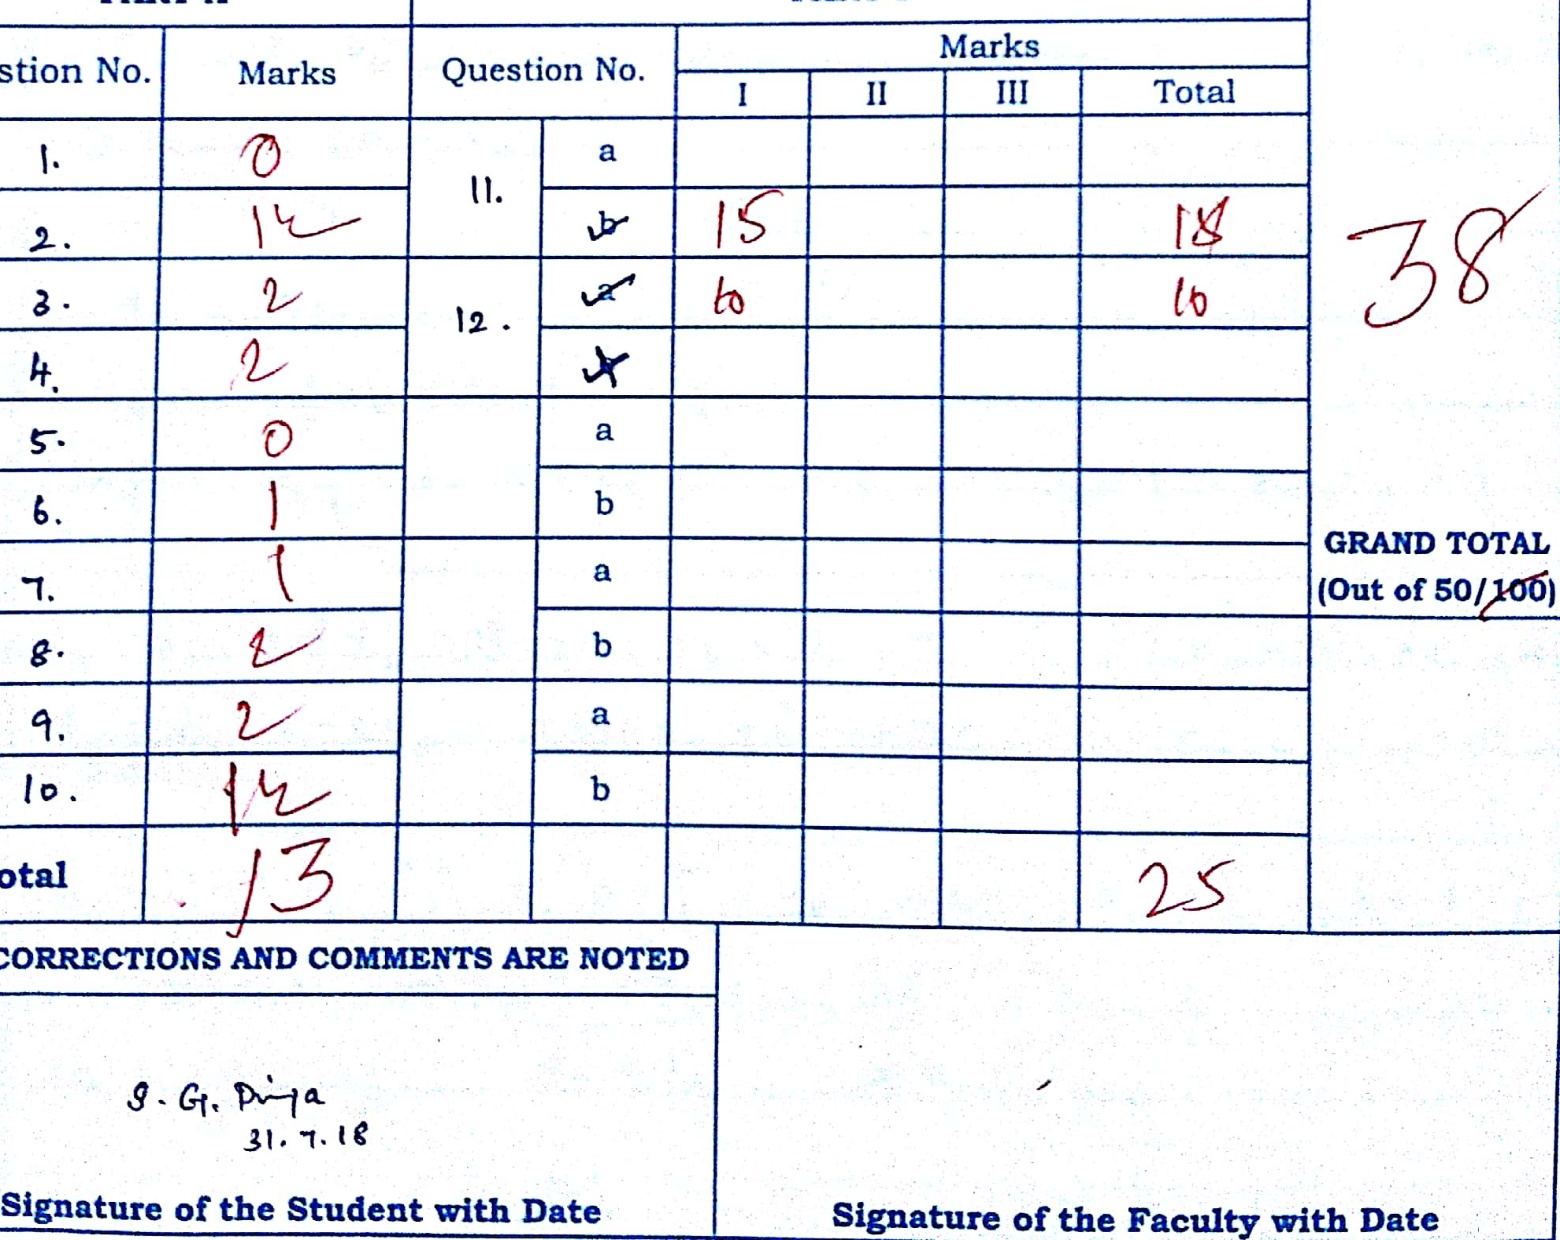 stion No. Marks Question No. Marks
I II III Total
1. 0 11. a
2. 1½ b 15 15
3. 2 12. a 10 10
4. 2
5. 0 a
6. 1 b
7. 1 a
8. 2 b
9. 2 a
10. 1½ b
otal 13 25
38
GRAND TOTAL
(Out of 50/100)
CORRECTIONS AND COMMENTS ARE NOTED
G. Priya
31.7.18
Signature of the Student with Date
Signature of the Faculty with Date